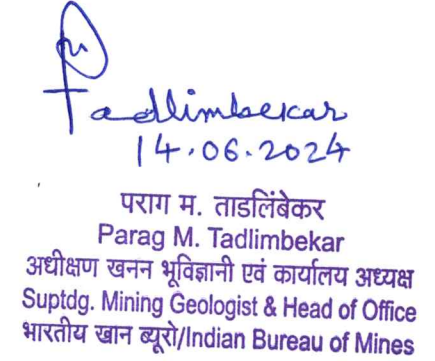 P Tadlimbekar
14.06.2024
पराग म. ताडलिंबेकर
Parag M. Tadlimbekar
अधीक्षण खनन भूविज्ञानी एवं कार्यालय अध्यक्ष
Suptdg. Mining Geologist & Head of Office
भारतीय खान ब्यूरो/Indian Bureau of Mines